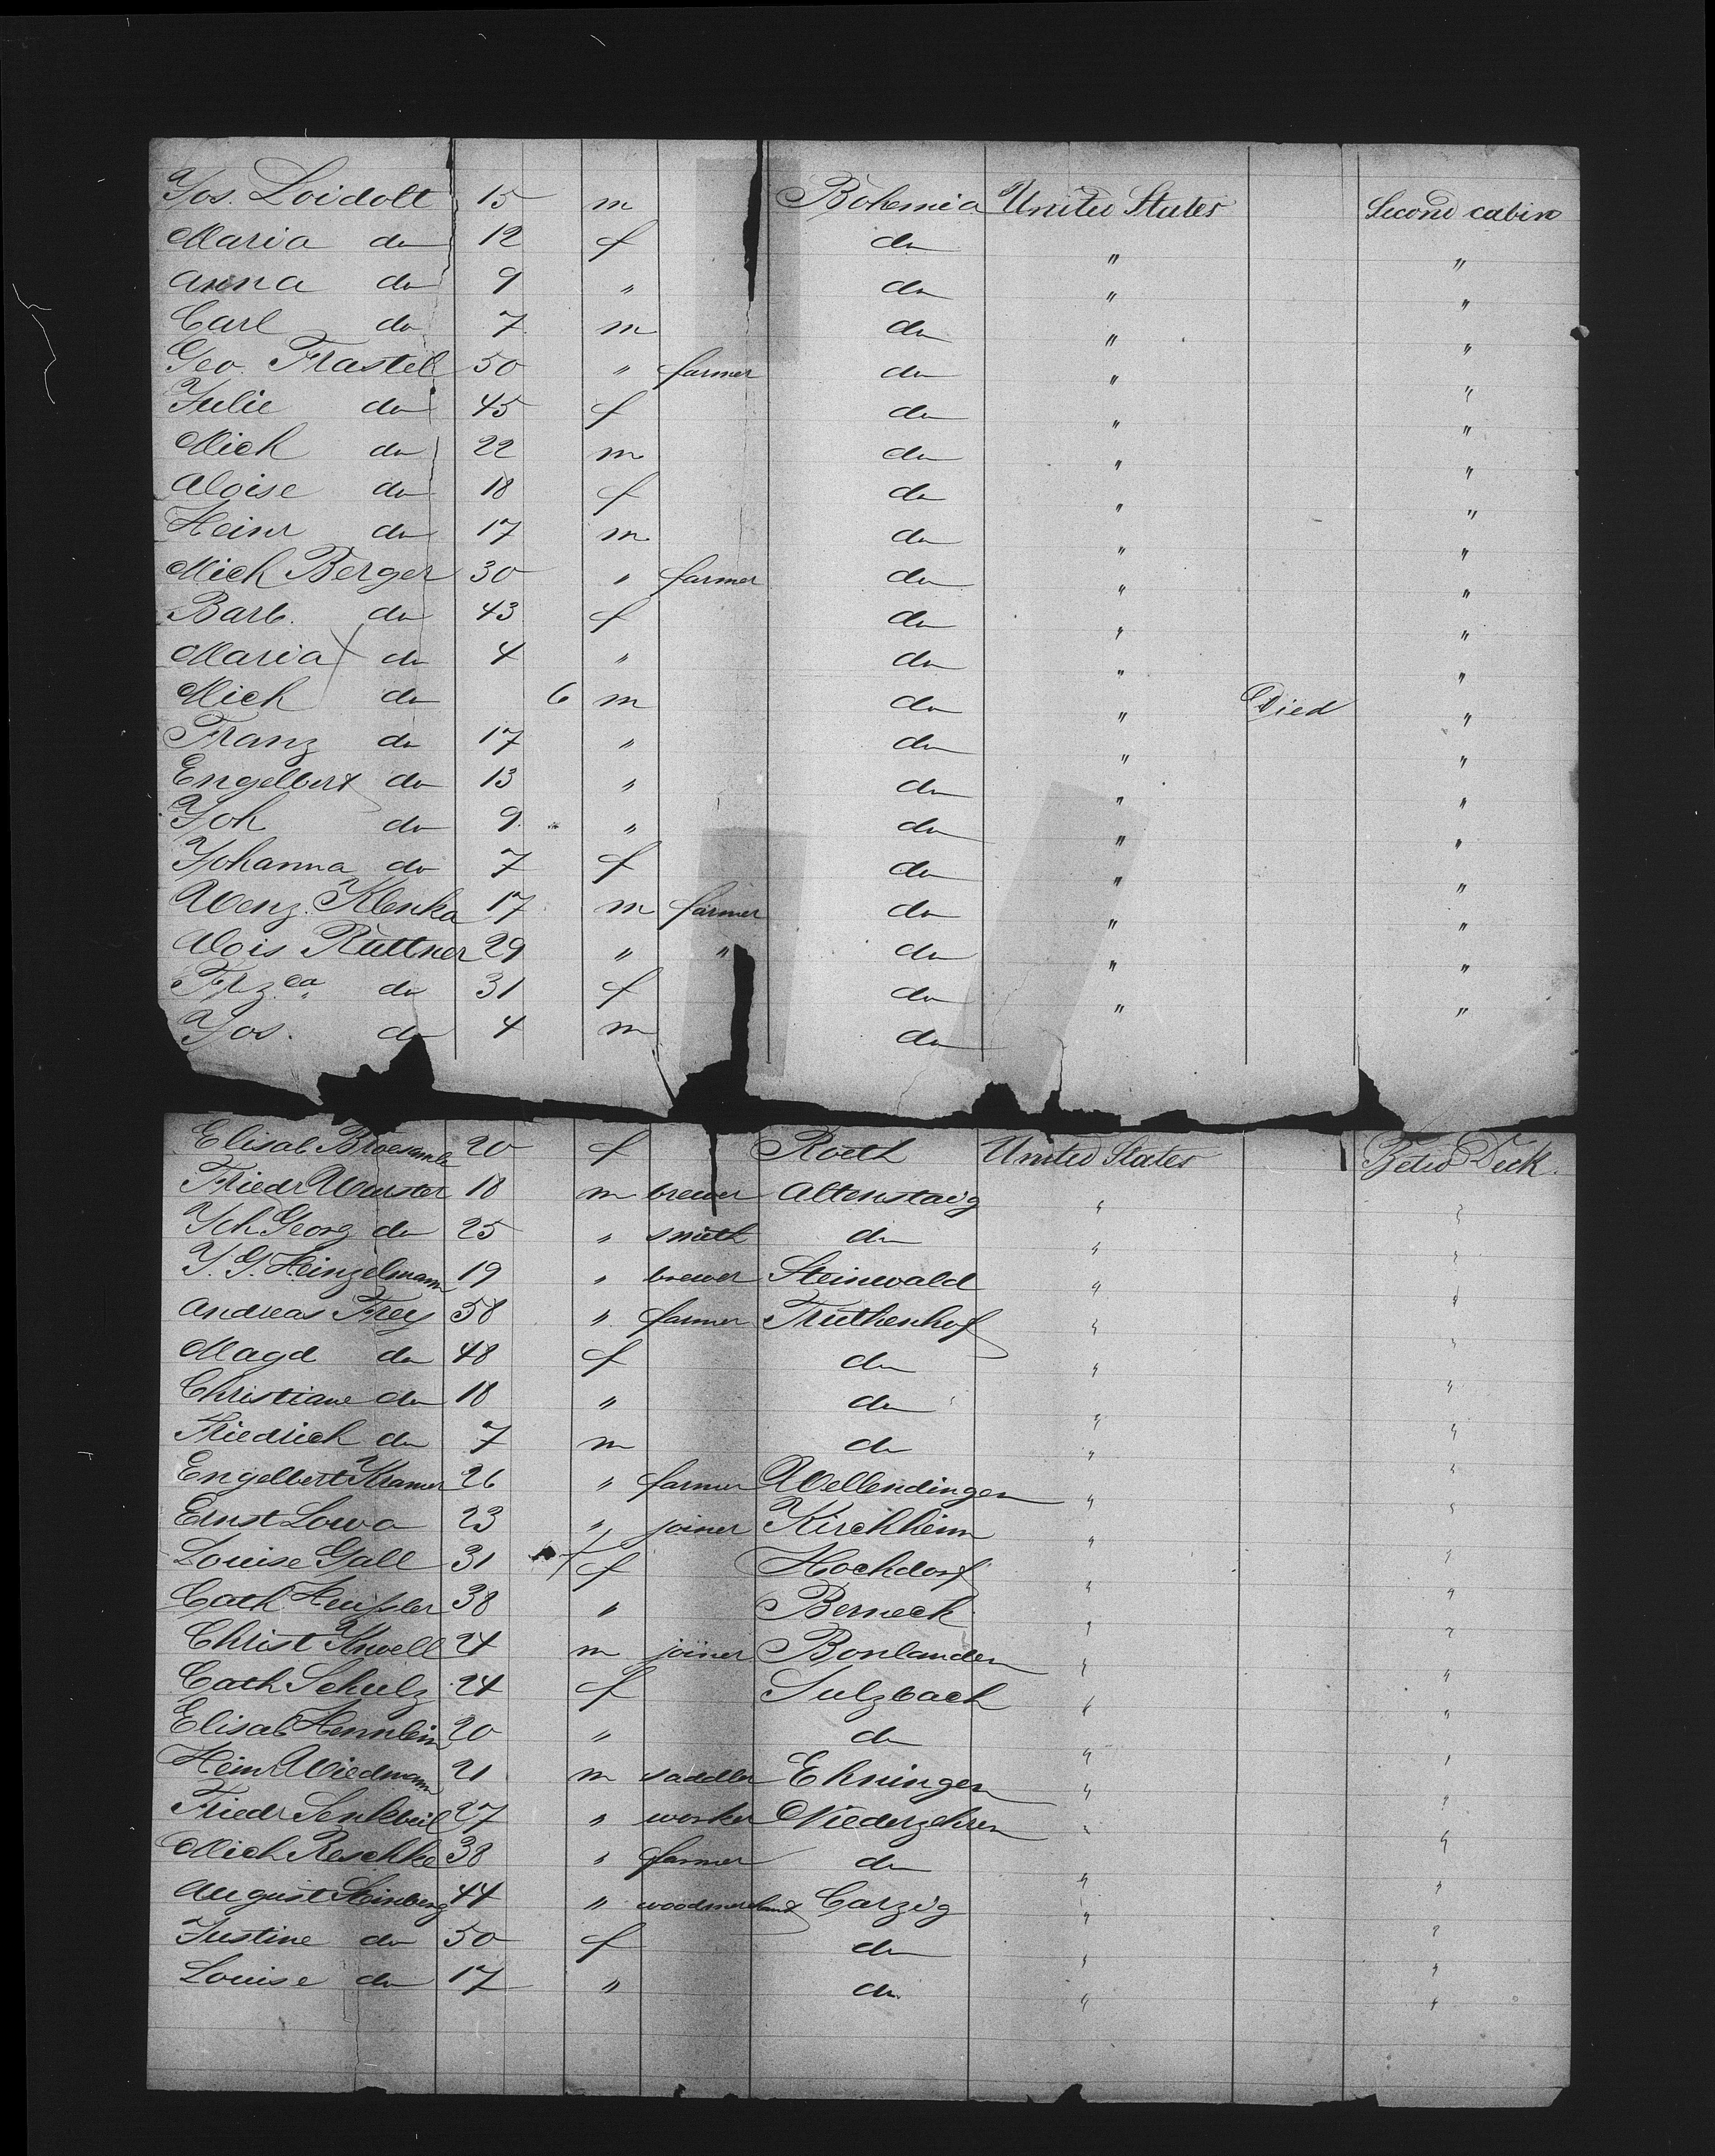 Jos. Loidolt 15 m Bohemia United States Second cabin
Maria do 12 f do " "
Anna do 9 " do " "
Carl do 7 m do " "
Geo. Frastel 50 " farmer do " "
Julie do 45 f do " "
Mich do 22 m do " "
Aloise do 18 f do " "
Heinr do 17 m do " "
Mich Berger 30 " farmer do " "
Barb. do 43 f do " "
Maria do 4 " do " "
Mich do 6 m do " Died "
Franz do 17 " do " "
Engelbert do 13 " do " "
Joh do 9 " do " "
Johanna do 7 f do " "
Wenz. Klenka 17 m farmer do " "
Alois Ruttner 29 " " do " "
Frzca do 31 f do " "
Jos. do 4 m do
Elisab 20 f Roeth United States Betw Deck
Friedr Wurster 18 m brewer Altenstaig " "
Joh Georg do 25 " smith do " "
J. G. Heinzelmann 19 " brewer Steinwald " "
Andreas Frey 58 " farmer Truthenhof " "
Magd do 48 f do " "
Christiane do 18 " do " "
Friedrich do 7 m do " "
Engelbert Kramer 26 " farmer Wellendingen " "
Ernst Lowa 23 " joiner Kirchheim " "
Louise Gall 31 f Hochdorf " "
Cath Heußler 38 " Berneck " "
Christ Knoell 24 m joiner Bonlanden " "
Cath Schulz 24 f Sulzbach " "
Elisab Hennlein 20 " do " "
Heinr Wiedmann 21 m saddler Ehningen " "
Friedr Senkbeil 27 " worker Niederzehren " "
Mich Reschke 38 " farmer do " "
August Steinberg 44 " woodmerchant Carzig " "
Justine do 50 f do " "
Louise do 17 " do " "